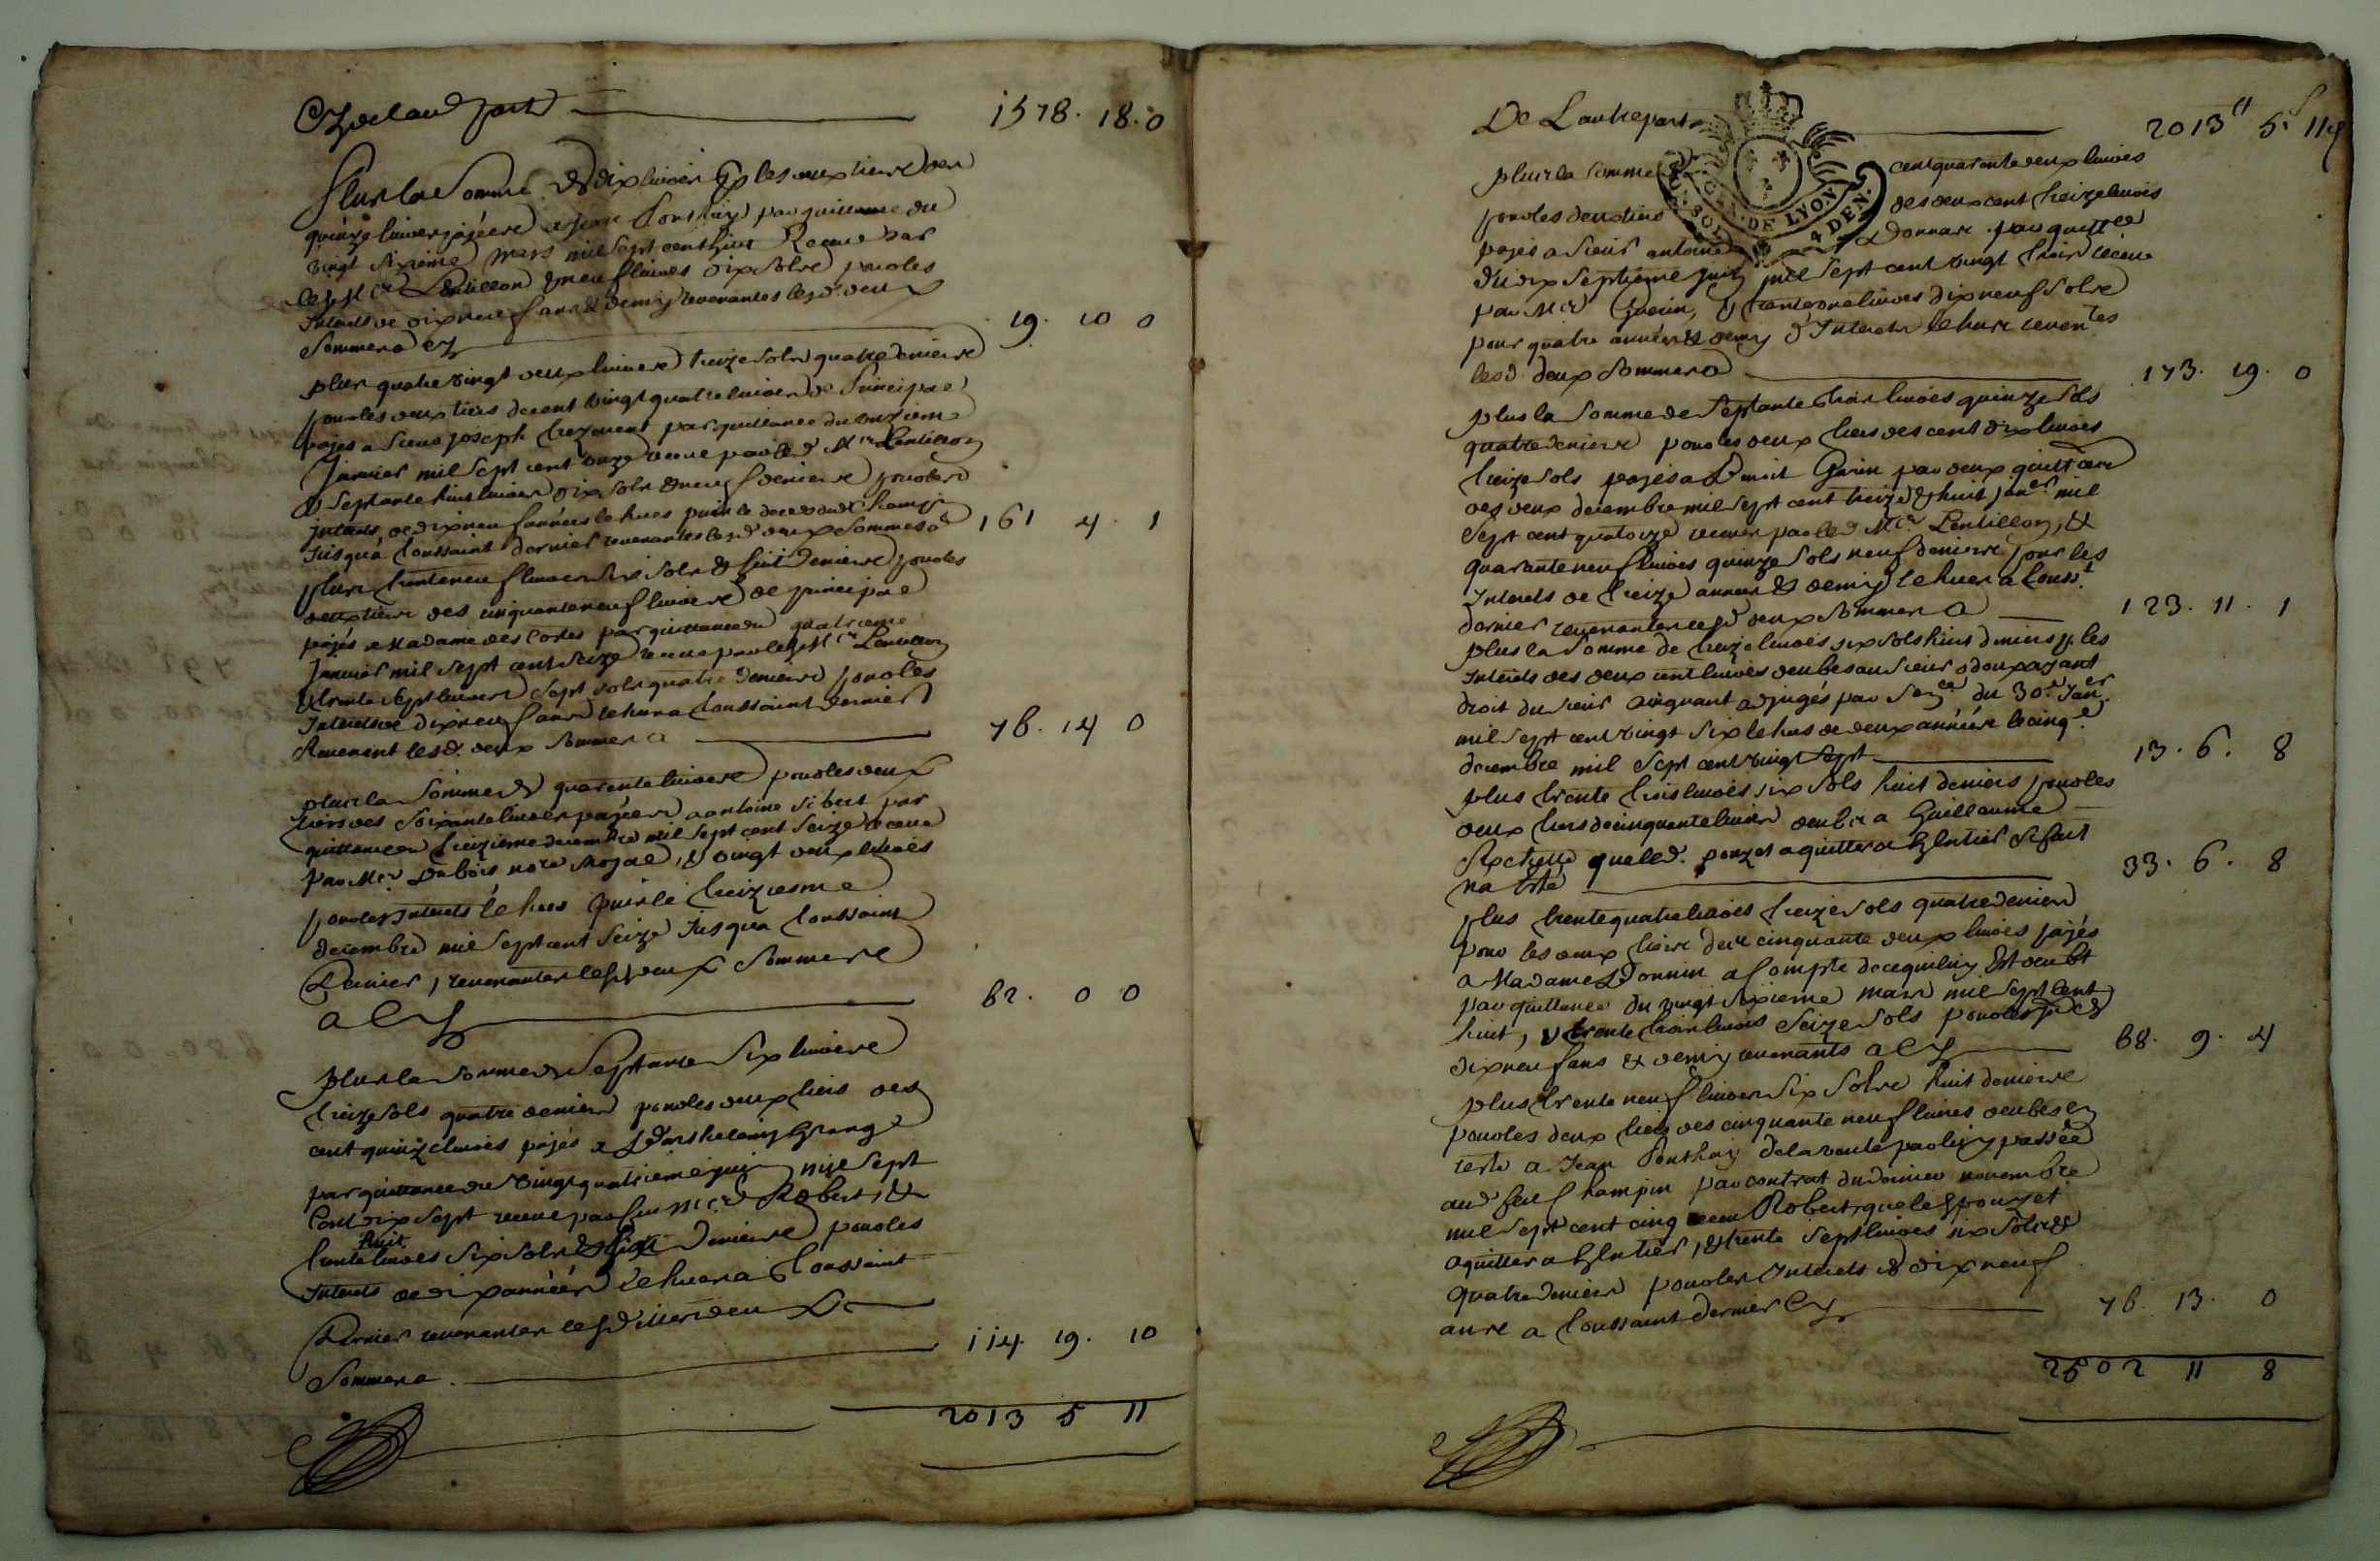 Cy de laud part 1578. 18. 0
Plus la Somme de dix livres pr les deux tiers des
quinze livres payées a Jean Ponthuy par quittance du
vingt sixieme mars mil sept cent huit Receue par
led Mre Lentillon & neuf livres dix sols pour les
Interets de dix neuf ans & demy revenantes lesd. deux
Sommes a cy 19. 10 0
plus quatre vingt deux livres treize sols quatre deniers
pour les deux tiers de cent vingt quatre livres de Principal
payés a Sieur joseph par quittance du onzieme
Janvier mil Sept cent onze receue par led Mre Lentillon
& Septante huit livres dix sols & neuf deniers pour les
interets de dix neuf années echues puis le deces dud Champin
Jusqu'a Toussaint dernier revenantes lesd deux Sommes a 161 4. 1
plus trente neuf livres six sols & huit Deniers pour les
deux tiers des cinquante neuf livres de principal
payés a Madame des Cortes par quittance du quatrieme
Janvier mil Sept cent Seize receue par led Mre Lentillon
& trente Sept livres Sept sols quatre deniers pour les
Interets de dix neuf ans echus a Toussaint dernier
Revenant lesd. deux Sommes a 76. 14 0
plus la Somme de quarente livres pour les deux
tiers des Soixante livres payées a antoine Sibert par
quittance du treizieme decembre mil sept cent Seize receue
par Mre Dubois nore Royal, & vingt deux livres
pour les Interets echus puis le treiziesme
decembre mil Sept cent Seize Jusqu'a Toussaint
Dernier, revenantes lesd deux Sommes
a Cy 62. 0 0
plus la Somme de Septante Six livres
treize sols quatre deniers pour les deux tiers des
cent quinze livres payés a Barthelemy Grange
par quittance du vingt quatrieme juin mil Sept
Cent dix Sept receue par feu Mre Robert, &
trente huit livres Six sols & Six Deniers pour les
Interets de dix années echues a Toussaint
Dernier revenantes lesd deux
Sommes a 114. 19. 10
2013 5 11
De L'autre part 2013ll 5s 11d
plus la Somme cent quarente deux livres
pour les deux tiers des deux cent treize livres
payés a Sieur antoine Donnat par quittce
du dix Septieme juin mil Sept cent vingt trois receue
par Mre Guerin, & trente une livres dix neuf Sols
pour quatre années & demy d'Interets echus revenantes
lesd. deux Sommes a 173. 19. 0
plus la Somme de Septante trois livres quinze sols
quatre deniers pour les deux tiers des cent dix livres
treize sols payés a Benoit Garin par deux quittces
des deux decembre mil sept cent treize & huit janer mil
Sept cent quatorze receues par led Mre Lentillon, &
quarante neuf livres quinze Sols neuf deniers pour les
Interets de treize années & demy echues a Tousst
dernier revenantes lesd deux Sommes a 123. 11. 1
plus la Somme de treize livres six sols huit deniers pr les
Interets des deux cent livres deubes au Sieur ayant
droit du Sieur adjugés par Sence du 30e Janer
mil Sept cent vingt Six echus de deux années le cinqe
decembre mil Sept cent vingt Sept 13. 6. 8
plus trente trois livres six sols huit deniers pour les
deux tiers de cinquante livres deubs a Guillaume
que led. pouzet a quitter a L'entier Si fait
na Esté 33. 6. 8
plus trente quatre livres treize sols quatre deniers
pour les deux tiers de cinquante deux livres payés
a Madame Donnin a Compte de ce qui luy Est deubt
par quittance du vingt Sixieme mars mil Sept Cent
huit, & trente trois livres Seize Sols pour les
dix neuf ans & demy revenants a Cy 68. 9. 4
plus trente neuf livres Six Sols huit deniers
pour les deux tiers des cinquante neuf livres deubes en
reste a Jean Ponthuy de la vente par luy passée
aud feu Champin par contrat du dernier novembre
mil Sept cent cinq receu Robert, que led pouzet
a quitter a L'entier, & trente Sept livres six Sols &
quatre deniers pour les Interets de dix neuf
ans a Toussaint dernier Cy 76. 13. 0
2502 11 8
GEN. DE LYON
SOL. 4 DEN.